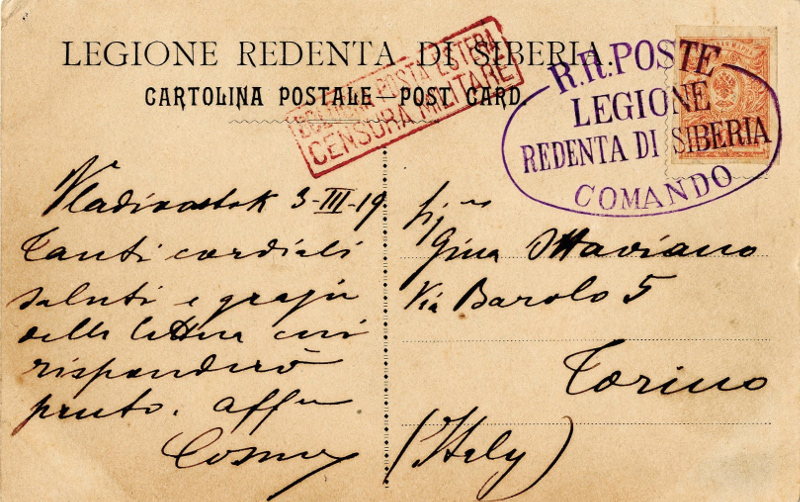 LEGIONE REDENTA DI SIBERIA.
CARTOLINA POSTALE—POST CARD.
BOLOGNA POSTA ESTERA
CENSURA MILITARE
R.R. POSTE
LEGIONE
REDENTA DI SIBERIA
COMANDO
Vladivostok 3-III-19
Tanti cordiali
saluti e grazie
della lettera cui
risponderò
presto. Aff
Gina Ottaviano
Via Barolo 5
Torino
(Italy)